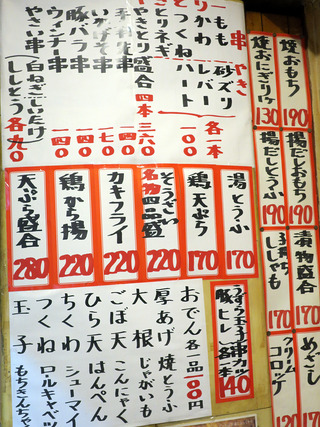 串やき
もも 砂ズリ
かわ レバー
つくね ハート
各一本 一00
とりネギ
やきとり盛合 四本 三六0
いかげそ串 一七0
豚バラ串 一四0
ウィンナー串 一四0
やさい串 白ねぎ しいたけ ししとう 各九0
湯とうふ 170
鶏天ぷら 170
名物四品盛 220
カキフライ 220
鶏から揚 220
天ぷら盛合 280
うずら玉子串カツ
豚ヒレ 各一本 140
おでん各一品 一00円
厚あげ 焼とうふ
大根 じゃがいも
ごぼ天 こんにゃく
ひら天 はんぺん
ちくわ シューマイ
つくね ロールキャベツ
玉子 もちきんちゃく
焼おもち 190
焼おにぎり 130
揚だしおもち 190
揚だしとうふ 190
漬物盛合 170
子持ししゃも 170
めざし 170
クリームコロッケ 120